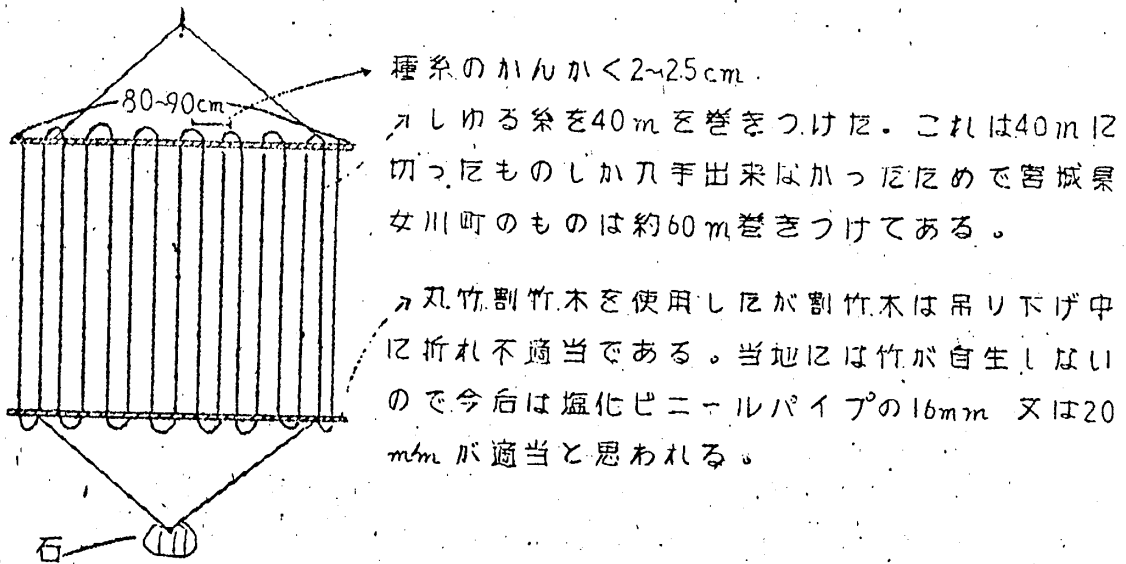 種糸のかんかく2~2.5cm.
80~90cm
しゆる糸を40mを巻きつけた。これは40mに
切ったものしか入手出来なかったためで宮城県
女川町のものは約60m巻きつけてある。
丸竹割竹木を使用したが割竹木は吊り下げ中
に折れ不適当である。当地には竹が自生しない
ので今后は塩化ビニールパイプの16mm 又は20
mm が適当と思われる。
石